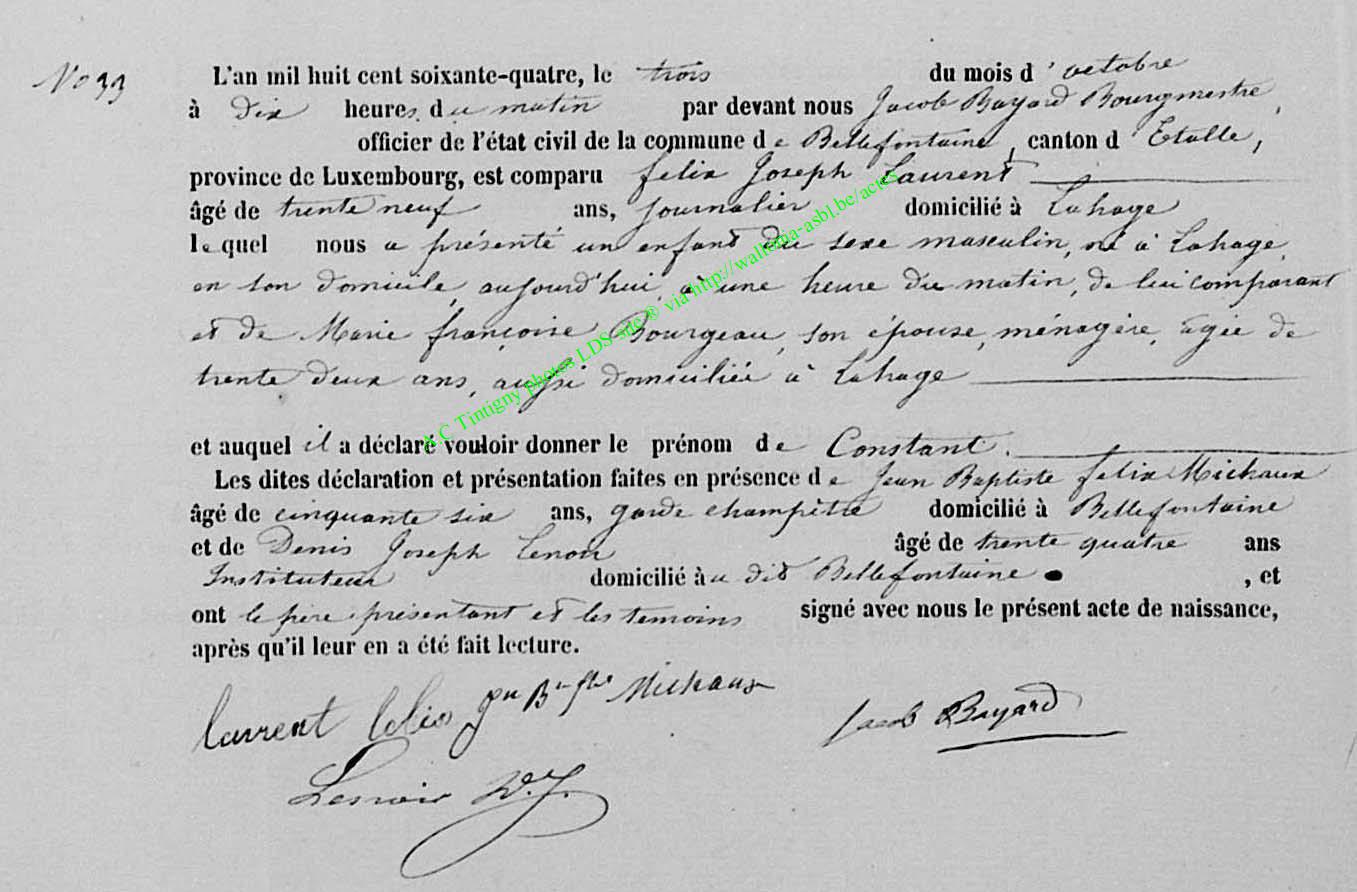 No 33
L'an mil huit cent soixante-quatre, le trois du mois d'octobre
à dix heures du matin par devant nous Jacob Bayard Bourgmestre,
officier de l'état civil de la commune de Bellefontaine, canton d'Etalle,
province de Luxembourg, est comparu felix Joseph Laurent
âgé de trente neuf ans, journalier domicilié à Lahage
lequel nous a présenté un enfant du sexe masculin, né à Lahage,
en son domicile, aujourd'hui à une heure du matin, de lui comparant
et de Marie françoise Bourgeau, son épouse, ménagère, agée de
trente deux ans, aussi domiciliée à Lahage
et auquel il a déclaré vouloir donner le prénom de Constant.
Les dites déclaration et présentation faites en présence de Jean Baptiste felix Michaux
âgé de cinquante six ans, garde champêtre domicilié à Bellefontaine
et de Denis Joseph Lenoir âgé de trente quatre ans
Instituteur domicilié àu dit Bellefontaine, et
ont le père présentant et les temoins signé avec nous le présent acte de naissance,
après qu'il leur en a été fait lecture.
Laurent felix Jn Bte Michaux Jacob Bayard
Lenoir D. J.
A.C Tintigny photos LDS sdc® via http://wallonia-asbl.be/actes